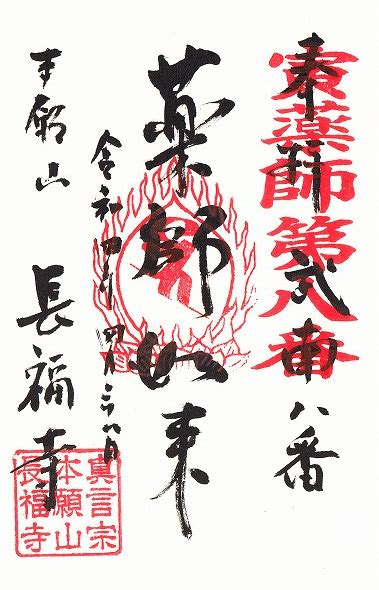 寅薬師第八番
奉拝 武南八番
薬師如来
令和四年四月
本願山 長福寺
真言宗
本願山
長福寺